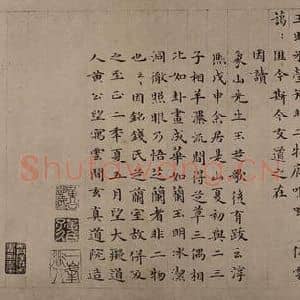 蕩:匪今斯今友道在
因讀
象山先生玉芝歌後有跋云淳
熙戊申余居是山夏初與二三
子相羊瀑流間得芝草三偶相
比如卦畫成華如蘭玉明冰潔
洞徹照眼乃悟芝蘭者非二物
也云因銘錢氏芝蘭室故併及
之至正二季夏五月望大癡道
人黃公望寓雲間玄真道院造